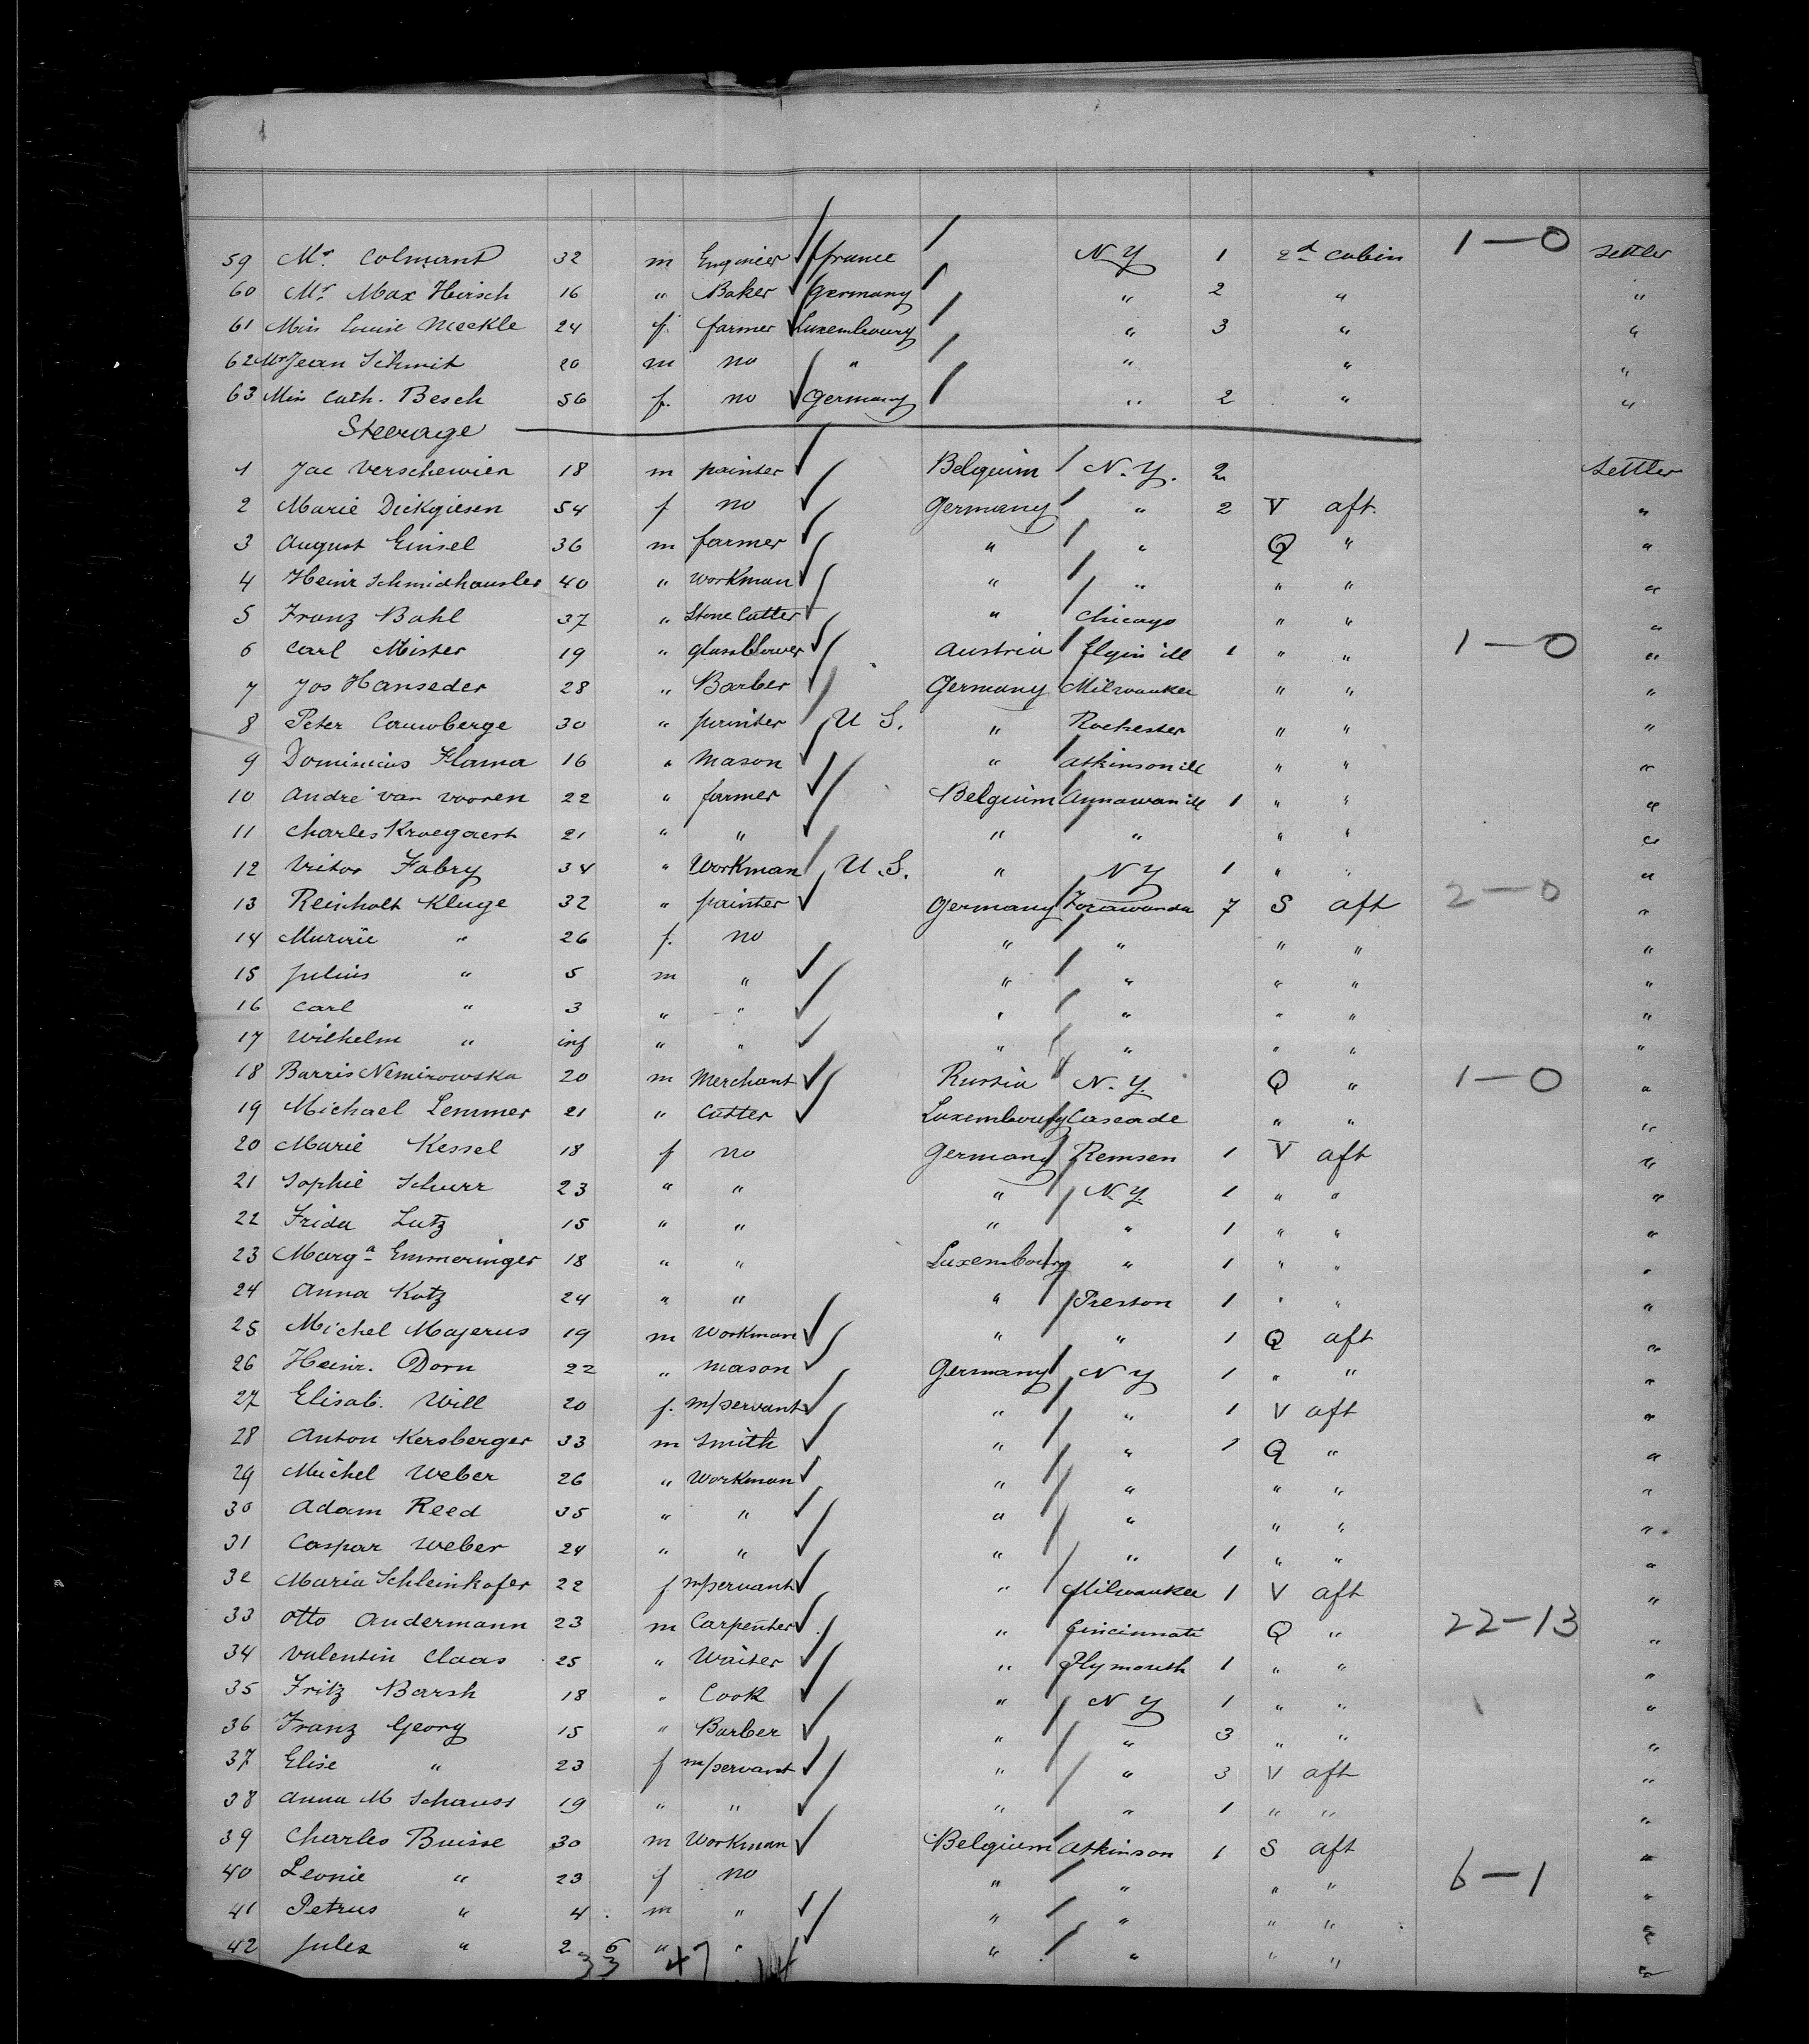 59 Mr. Colmant 32 m Engineer france N Y 1 2d cabin 1—0 settler
60 Mr. Max Hirsch 16 " Baker Germany " 2 " "
61 Miss Louise Meckle 24 f. farmer Luxembourg " 3 " "
62 Mr Jean Schmit 20 m no " " " "
63 Miss Cath. Besch 56 f. no Germany " 2 " "
Steerage
1 Jac Verschewien 18 m painter Belguim N.Y. 2 Settler
2 Marie Dickgiesen 54 f no Germany " 2 V aft. "
3 August Einsel 36 m farmer " " Q " "
4 Heinr Schmidhausler 40 " Workman " " " " "
5 Franz Bahl 37 " Stone Cutter " Chicago " " "
6 Carl Mister 19 " glassblower Austria Elgin ill 1 " " 1—0 "
7 Jos Hanseder 28 " Barber Germany Milwaukee " " "
8 Peter Couwberge 30 " painter U S. " Rochester " " "
9 Dominicus Flama 16 " Mason " Atkinson ill " " "
10 André van vooren 22 " farmer Belguim Annawan ill 1 " " "
11 Charles Kroegaert 21 " " " " " " "
12 Victor Fabry 34 " Workman U.S. " N Y 1 " " "
13 Reinholt Kluge 32 " painter Germany 7 S aft 2—0 "
14 " 26 f. no " " " " "
15 Julius " 5 m " " " " " "
16 Carl " 3 " " " " " " "
17 Wilhelm " inf " " " " " " "
18 Barris Nemirowska 20 m Merchant Russia N.Y. Q " 1—0 "
19 Michael Lemmer 21 " Cutter Luxembourg Cascade " " "
20 Marie Kessel 18 f no Germany Remsen 1 V aft "
21 Sophie Schurr 23 " " " N.Y. 1 " " "
22 Frida Lutz 15 " " " " 1 " " "
23 Marga Emmeringer 18 " " Luxembourg " 1 " " "
24 Anna Kotz 24 " " " Preston 1 " " "
25 Michel Majerus 19 m Workman " " 1 Q aft "
26 Heinr. Dorn 22 " mason Germany N Y 1 " " "
27 Elisab. Will 20 f. m/servant " " 1 V aft "
28 Anton Kersberger 33 m Smith " " 1 Q " "
29 Michel Weber 26 " Workman " " " " "
30 Adam Reed 35 " " " " " " "
31 Caspar Weber 24 " " " " 1 " " "
32 Maria Schleinkofer 22 f m/servant " Milwaukee 1 V aft "
33 Otto Andermann 23 m Carpenter " Cincinnati Q " 22—13 "
34 Valentin Claas 25 " Waiter " Plymouth 1 " " "
35 Fritz Barsh 18 " Cook " N Y 1 " " "
36 Franz Georg 15 " Barber " " 3 " " "
37 Elise " 23 f m/servant " " 3 V aft "
38 Anna M Schauss 19 " " " " 1 " " "
39 Charles Buisse 30 m Workman Belgium Atkinson 1 S aft "
40 Leonie " 23 f no " " " " 6—1 "
41 Petrus " 4 m " " " " " "
42 Jules " 2 6 " " " " " " "
33 47